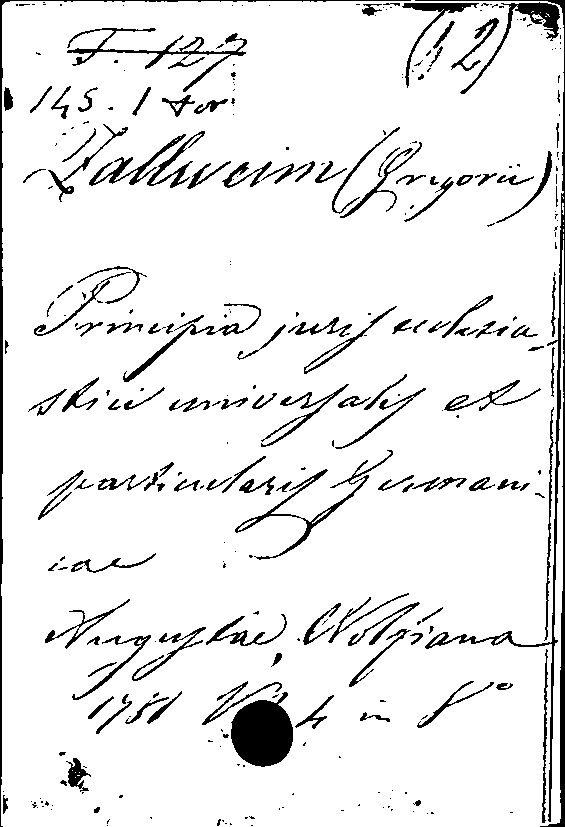 F. 127 (12)
145. 1
Zallweim (Gregorii)
Principia juris ecclesia-
stici universalis et
particularis Germani-
cae
Augustae, Wolfiana
1781 Vol 4 in 8°